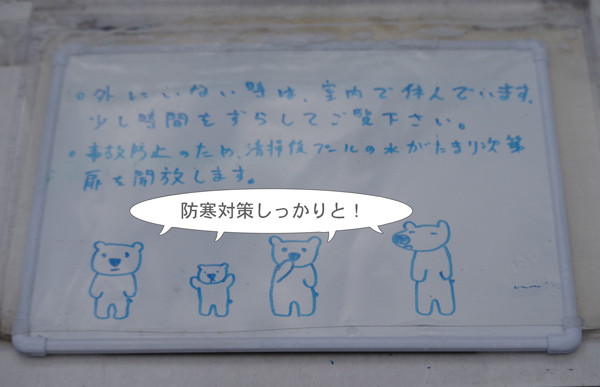 ・外にいない時は、室内で休んでいます。
少し時間をずらしてご覧下さい。
・事故防止のため、清掃後プールの水がたまり次第
扉を開放します。
防寒対策しっかりと！